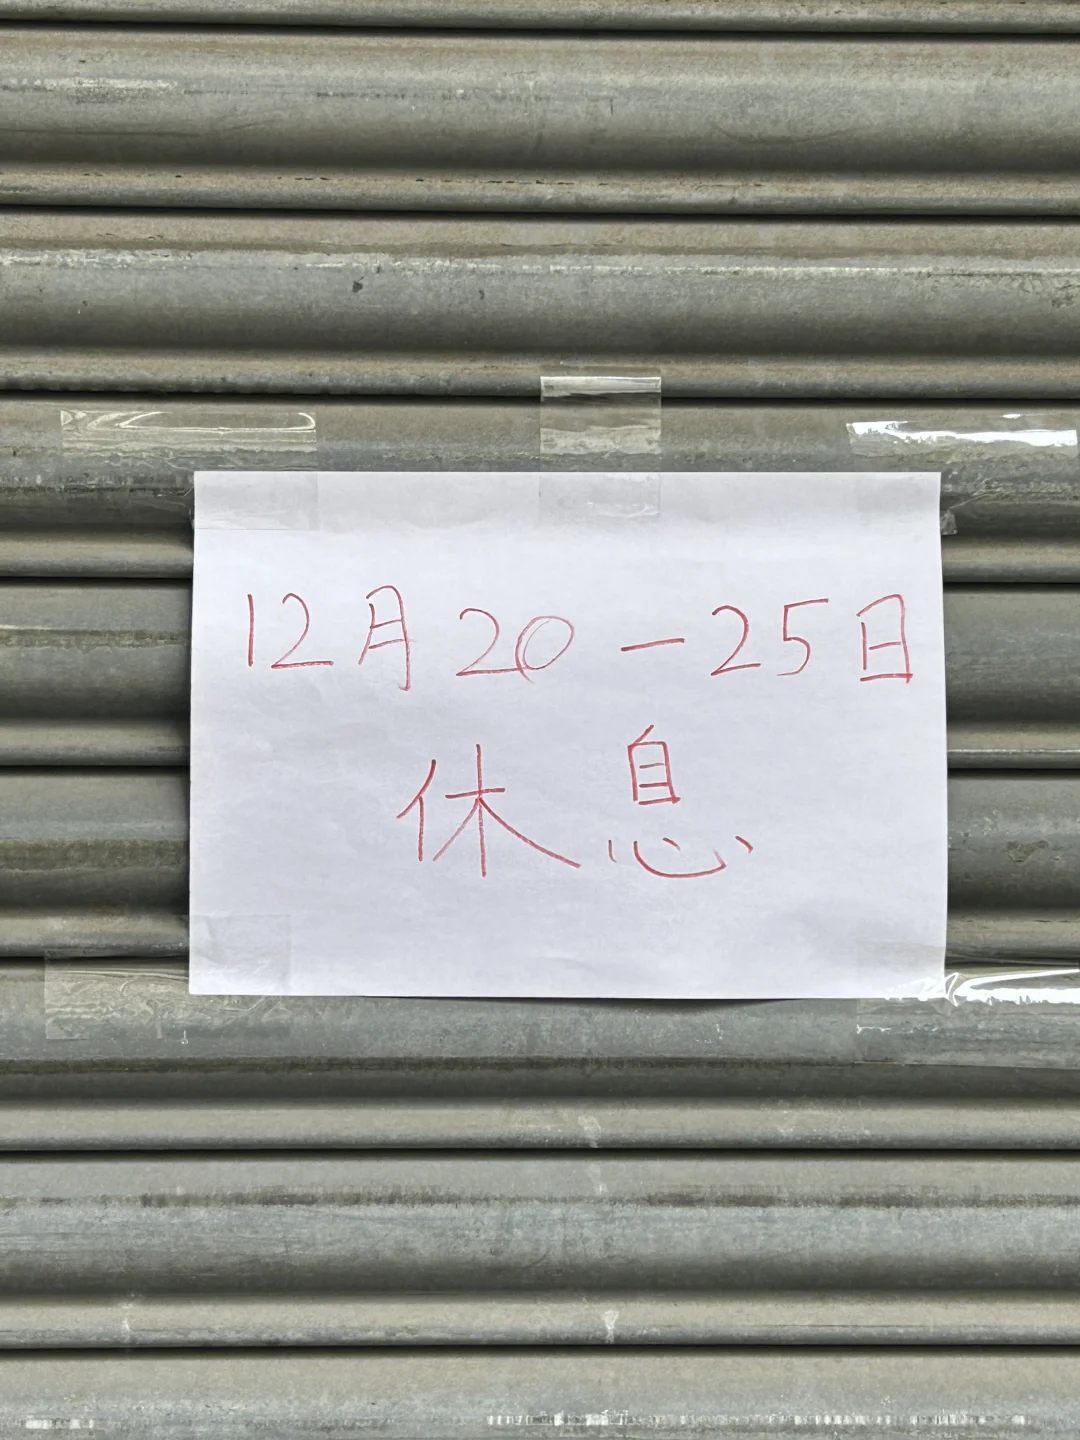 12月20-25日
休息